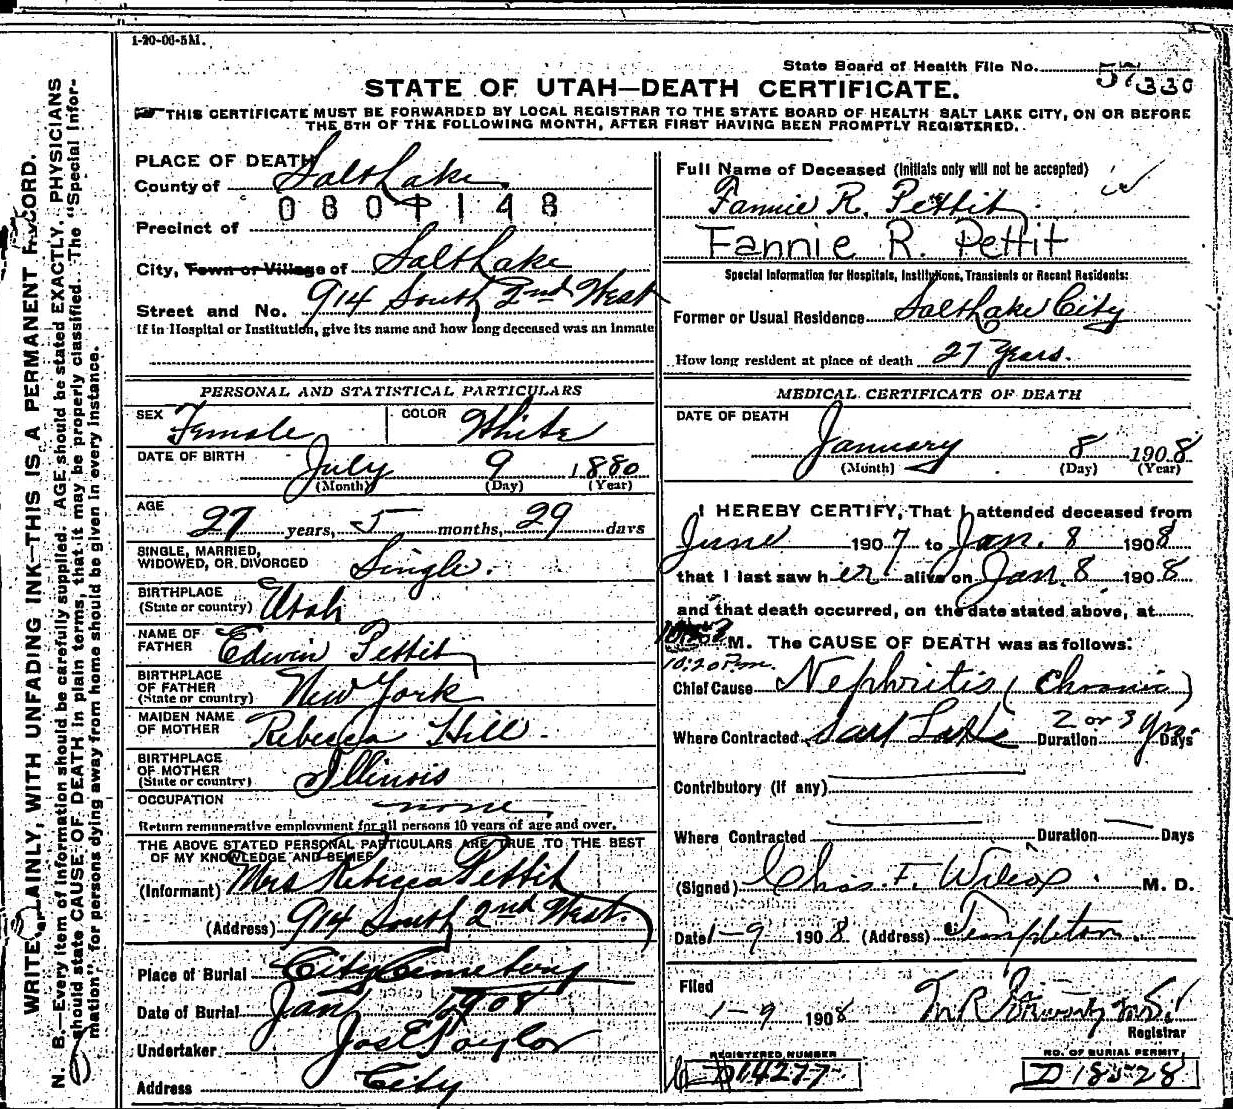 1-20-06-5M.
State Board of Health File No. 57 330
STATE OF UTAH—DEATH CERTIFICATE.
THIS CERTIFICATE MUST BE FORWARDED BY LOCAL REGISTRAR TO THE STATE BOARD OF HEALTH SALT LAKE CITY, ON OR BEFORE
THE 5TH OF THE FOLLOWING MONTH, AFTER FIRST HAVING BEEN PROMPTLY REGISTERED.
WRITE PLAINLY, WITH UNFADING INK—THIS IS A PERMANENT RECORD.
N. B.—Every item of information should be carefully supplied. AGE should be stated EXACTLY. PHYSICIANS
should state CAUSE OF DEATH in plain terms, that it may be properly classified. The "Special Infor-
mation" for persons dying away from home should be given in every instance.
PLACE OF DEATH
County of Salt Lake
0801148
Precinct of
City, Town or Village of Salt Lake
Street and No. 914 South 2nd West
If in Hospital or Institution, give its name and how long deceased was an inmate
PERSONAL AND STATISTICAL PARTICULARS
SEX Female COLOR White
DATE OF BIRTH July 9 1880
(Month) (Day) (Year)
AGE 27 years, 5 months, 29 days
SINGLE, MARRIED,
WIDOWED, OR DIVORCED Single.
BIRTHPLACE
(State or country) Utah
NAME OF
FATHER Edwin Pettit
BIRTHPLACE
OF FATHER
(State or country) New York
MAIDEN NAME
OF MOTHER Rebecca Hill.
BIRTHPLACE
OF MOTHER
(State or country) Illinois
OCCUPATION none
Return remunerative employment for all persons 10 years of age and over.
THE ABOVE STATED PERSONAL PARTICULARS ARE TRUE TO THE BEST
OF MY KNOWLEDGE AND BELIEF
(Informant) Mrs Rebecca Pettit
(Address) 914 South 2nd West.
Place of Burial City Cemetery
Date of Burial Jan 1908
Undertaker Jos E Taylor
Address City
Full Name of Deceased (Initials only will not be accepted)
Fannie R. Pettit
Fannie R. Pettit
Special Information for Hospitals, Institutions, Transients or Recent Residents:
Former or Usual Residence Salt Lake City
How long resident at place of death 27 Years.
MEDICAL CERTIFICATE OF DEATH
DATE OF DEATH
January 8 1908
(Month) (Day) (Year)
I HEREBY CERTIFY, That I attended deceased from
June 1907 to Jan. 8 1908
that I last saw her alive on Jan. 8 1908
and that death occurred, on the date stated above, at
M. The CAUSE OF DEATH was as follows:
10:20 P.m.
Chief Cause Nephritis (Chronic)
Where Contracted Salt Lake Duration 2 or 3 Yrs. Days
Contributory (if any)
Where Contracted Duration Days
(Signed) Chas. F. Wilcox M. D.
Date 1-9 1908 (Address) Templeton.
Filed
1-9 1908
Registrar
REGISTERED NUMBER
D14277
NO. OF BURIAL PERMIT
D 18528